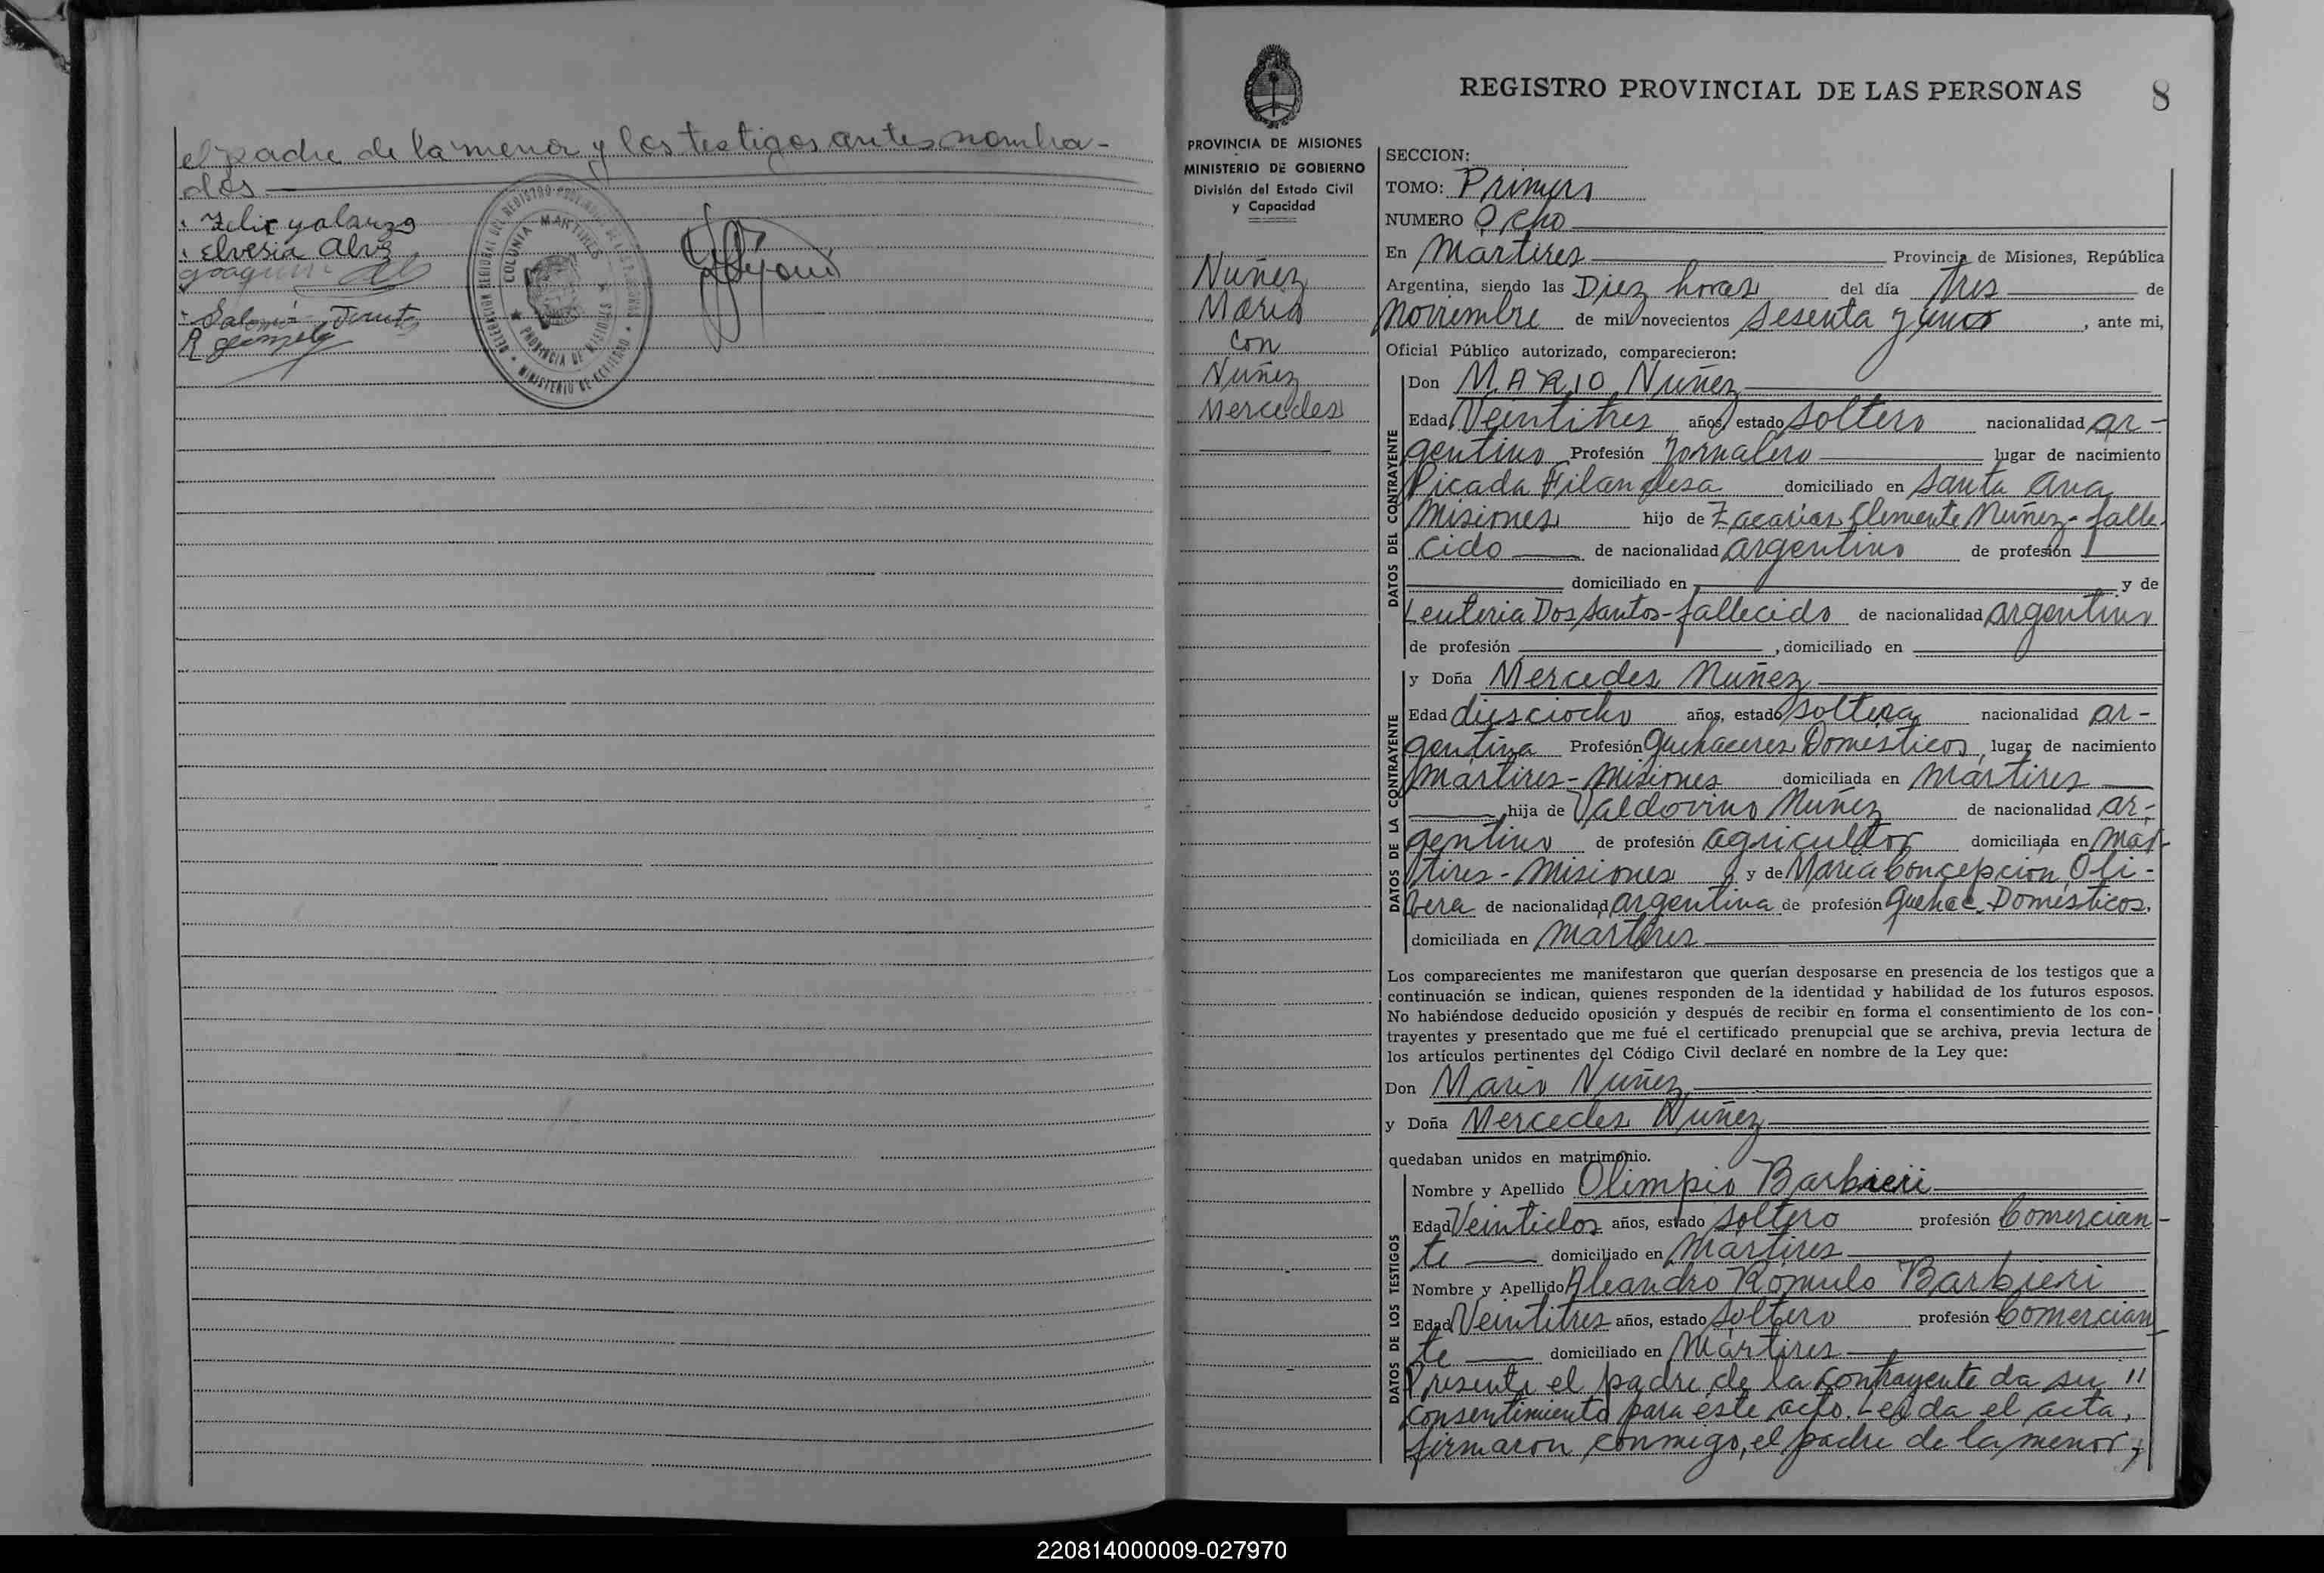 el padre de la menor y los testigos antes nombra-
dos
Felix
Elvesia Alvez
Joaquin
Salomé
R Gonzalez
DELEGACION REGIONAL DEL REGISTRO PROVINCIAL DE LAS PERSONAS
COLONIA MARTIRES
PROVINCIA DE MISIONES
MINISTERIO DE GOBIERNO
PROVINCIA DE MISIONES
MINISTERIO DE GOBIERNO
División del Estado Civil
y Capacidad
Nuñez
Mario
con
Nuñez
Mercedes
REGISTRO PROVINCIAL DE LAS PERSONAS 8
SECCION:
TOMO: Primero
NUMERO Ocho
En Martires Provincia de Misiones, República
Argentina, siendo las Diez horas del día tres de
Noviembre de mil novecientos Sesenta y uno, ante mi,
Oficial Público autorizado, comparecieron:
DATOS DEL CONTRAYENTE
Don MARIO Nuñez
Edad Veintitres años, estado soltero nacionalidad ar-
gentino Profesión Jornalero lugar de nacimiento
Picada Filandesa domiciliado en Santa Ana
Misiones hijo de Zacarias Clemente Nuñez - falle-
cido de nacionalidad argentino de profesión
domiciliado en y de
Leuteria Dos Santos - fallecido de nacionalidad argentino
de profesión , domiciliado en
DATOS DE LA CONTRAYENTE
y Doña Mercedes Nuñez
Edad diesciocho años, estado soltera nacionalidad ar-
gentina Profesión Quehaceres Domésticos, lugar de nacimiento
Mártires - Misiones domiciliada en Mártires
hija de Valdovino Nuñez de nacionalidad ar-
gentino de profesión agricultor domiciliada en Mar-
tires - Misiones y de Maria Concepción Oli-
vera de nacionalidad argentina de profesión Quehac. Domésticos.
domiciliada en Martires
Los comparecientes me manifestaron que querían desposarse en presencia de los testigos que a
continuación se indican, quienes responden de la identidad y habilidad de los futuros esposos.
No habiéndose deducido oposición y después de recibir en forma el consentimiento de los con-
trayentes y presentado que me fué el certificado prenupcial que se archiva, previa lectura de
los artículos pertinentes del Código Civil declaré en nombre de la Ley que:
Don Mario Nuñez
y Doña Mercedes Nuñez
quedaban unidos en matrimonio.
DATOS DE LOS TESTIGOS
Nombre y Apellido Olimpio Barbieri
Edad Veintidos años, estado soltero profesión Comercian-
te domiciliado en Mártires
Nombre y Apellido Aleandro Rómulo Barbieri
Edad Veintitres años, estado soltero profesión Comercian
te domiciliado en Mártires
Presente el padre de la contrayente da su "
consentimiento para este acto. Leida el acta,
firmaron conmigo, el padre de la menor y
220814000009-027970